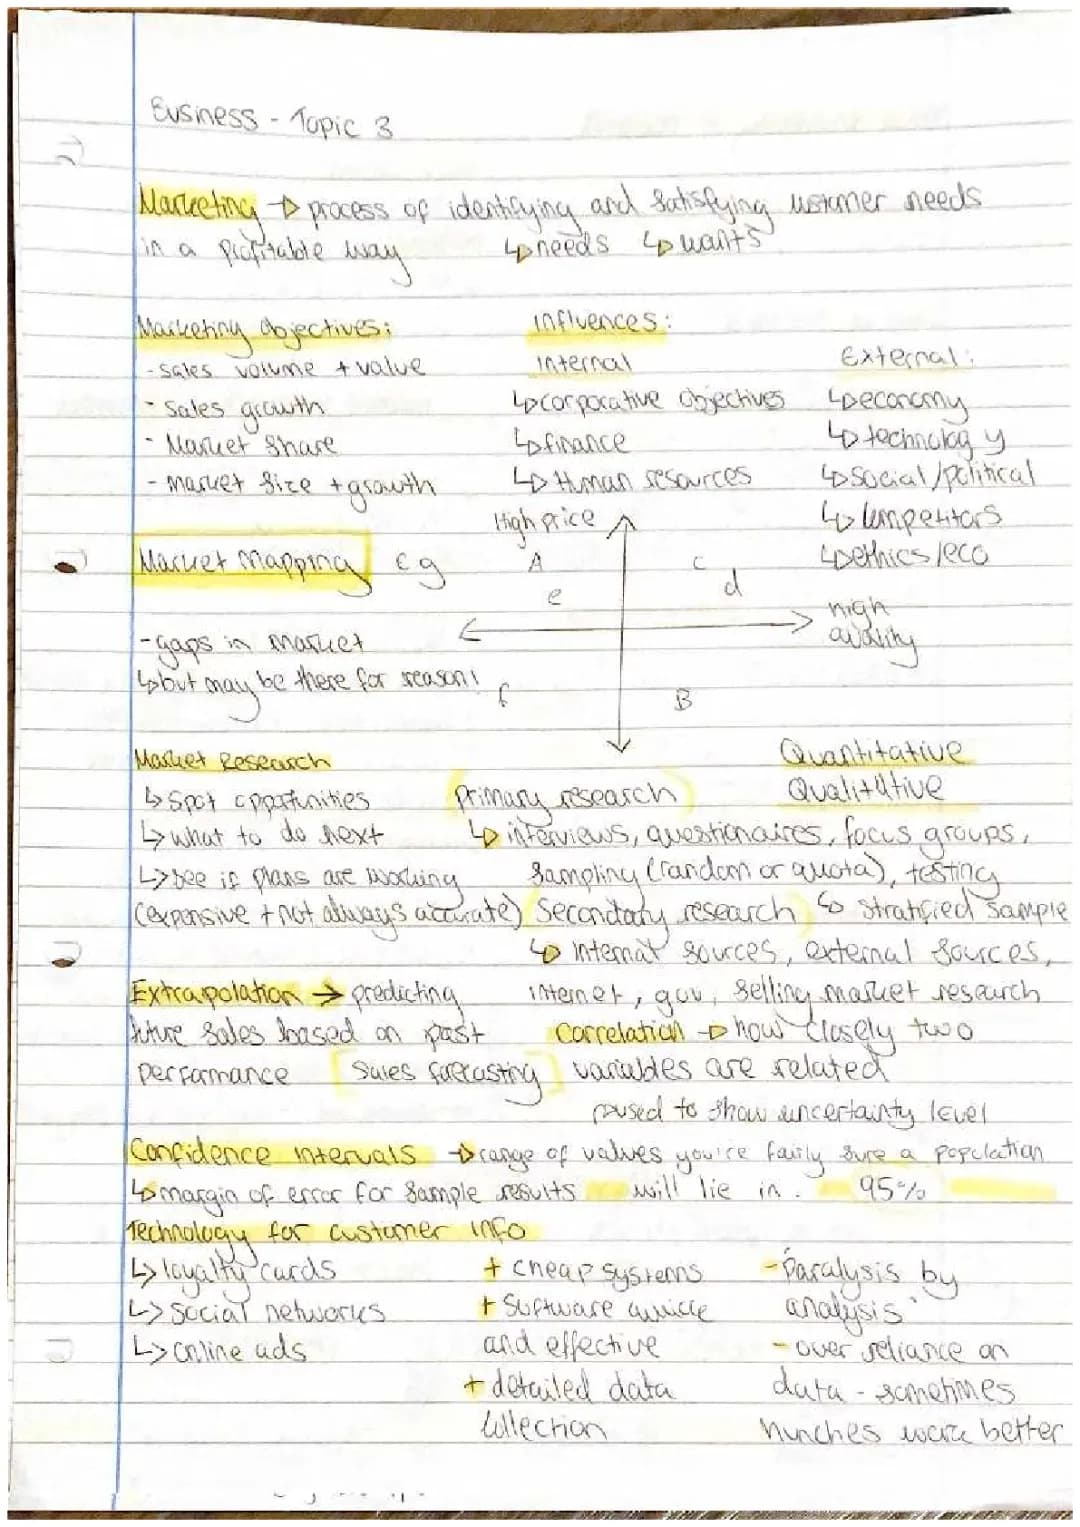 Business - Topic 3
Marketing → process of identifying and satisfying customer needs
in a profitable way ↳ needs ↳ wants
Marketing objectives: Influences:
- sales volume + value Internal External:
- Sales growth ↳ corporative objectives ↳ economy
- Market Share ↳ finance ↳ technology
- market size + growth ↳ Human resources ↳ social/political
High price ↳ competitors
Market Mapping eg A C ↳ ethics/eco
e d
high
quality
- gaps in market
↳ but may be there for reason!
f B
Market Research Quantitative
↳ Spot oppotunities primary research Qualitative
↳ what to do next ↳ interviews, questionaires, focus groups,
↳ see if plans are working Sampling (random or quota), testing
(expensive + not always accurate) Secondary research ↳ stratified sample
↳ Internal sources, external sources,
Extrapolation → predicting internet, gov, selling market research
future sales based on past Correlation → how closely two
performance [Sales forecasting] variables are related
used to show uncertainty level
Confidence intervals → range of values you're fairly sure a population
↳ margin of error for sample results will lie in. 95%
Technology for customer info
↳ loyalty cards + cheap systems - 'Paralysis by
↳ Social networks + Software quick analysis'
↳ Online ads and effective - over reliance on
+ detailed data data - sometimes
collection hunches work better